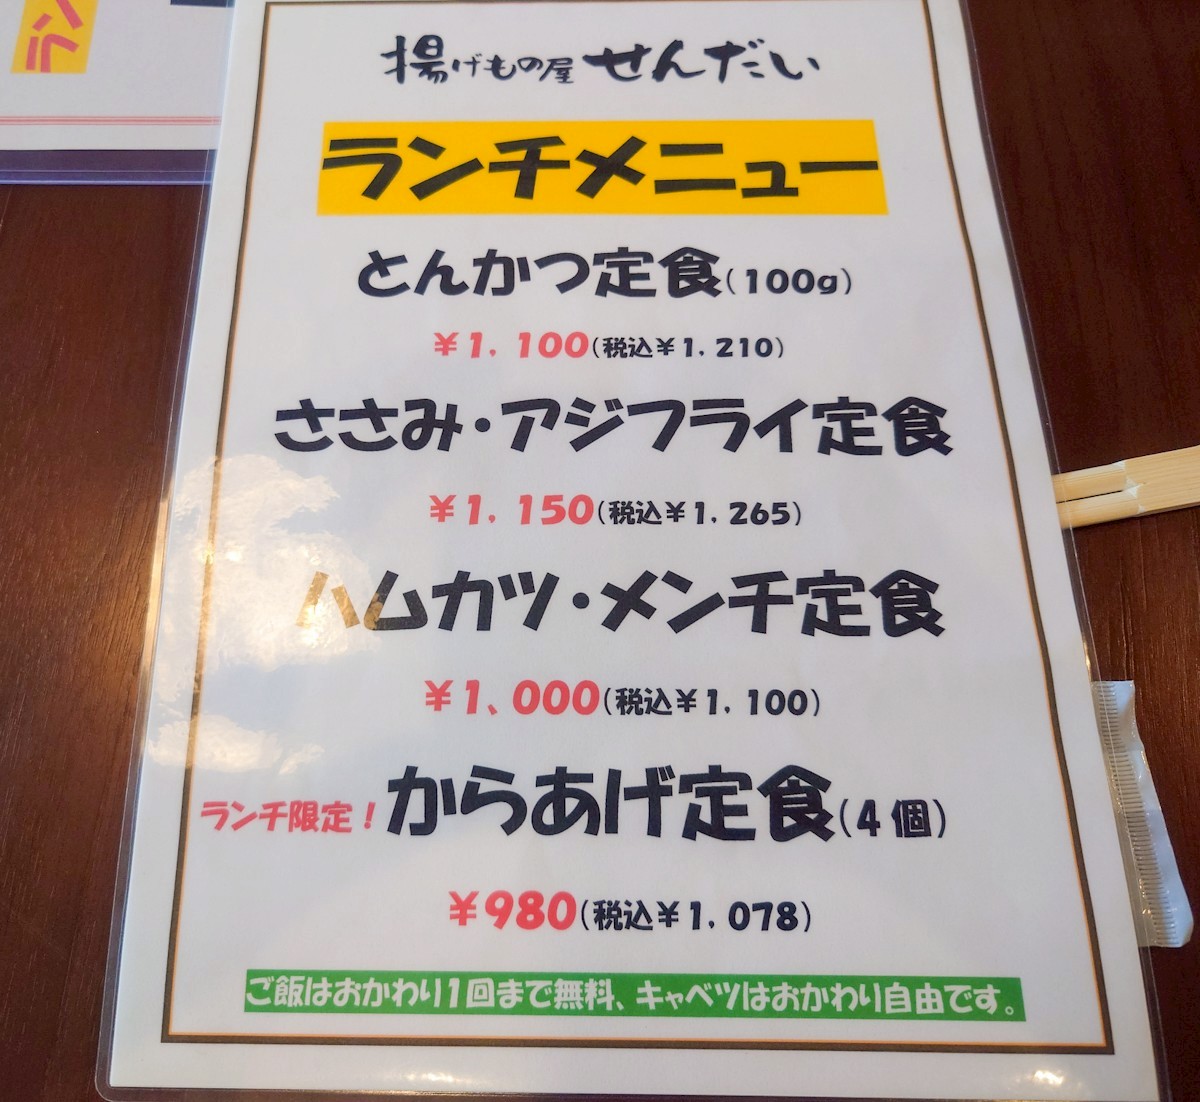 ラン
揚げもの屋 せんだい
ランチメニュー
とんかつ定食(100g)
¥1,100(税込¥1,210)
ささみ・アジフライ定食
¥1,150(税込¥1,265)
ハムカツ・メンチ定食
¥1、000(税込¥1,100)
ランチ限定!からあげ定食(4個)
¥980(税込¥1,078)
ご飯はおかわり1回まで無料、キャベツはおかわり自由です。